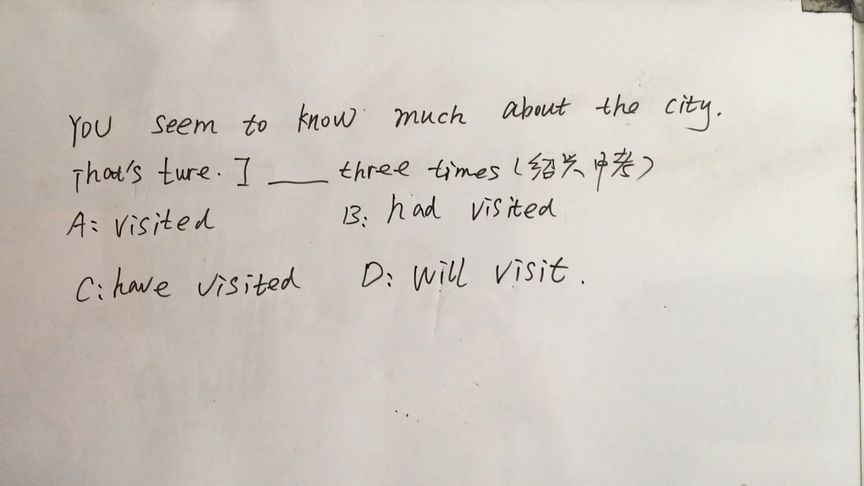 You seem to know much about the city.
That's ture. I ___ three times (绍兴中考)
A: visited B: had visited
C: have visited D: will visit.